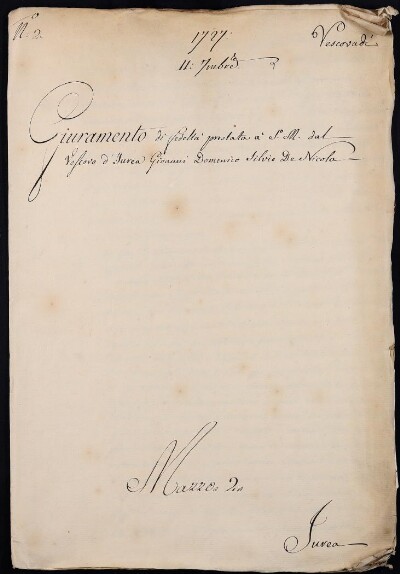 N.º 2.
1727.
Vescovadi
11. 7mbre
Giuramento di fedeltà prestata a S. M. dal
Vescovo d'Ivrea Giovanni Domenico Silvio De Nicola
Mazzo 2do
Ivrea